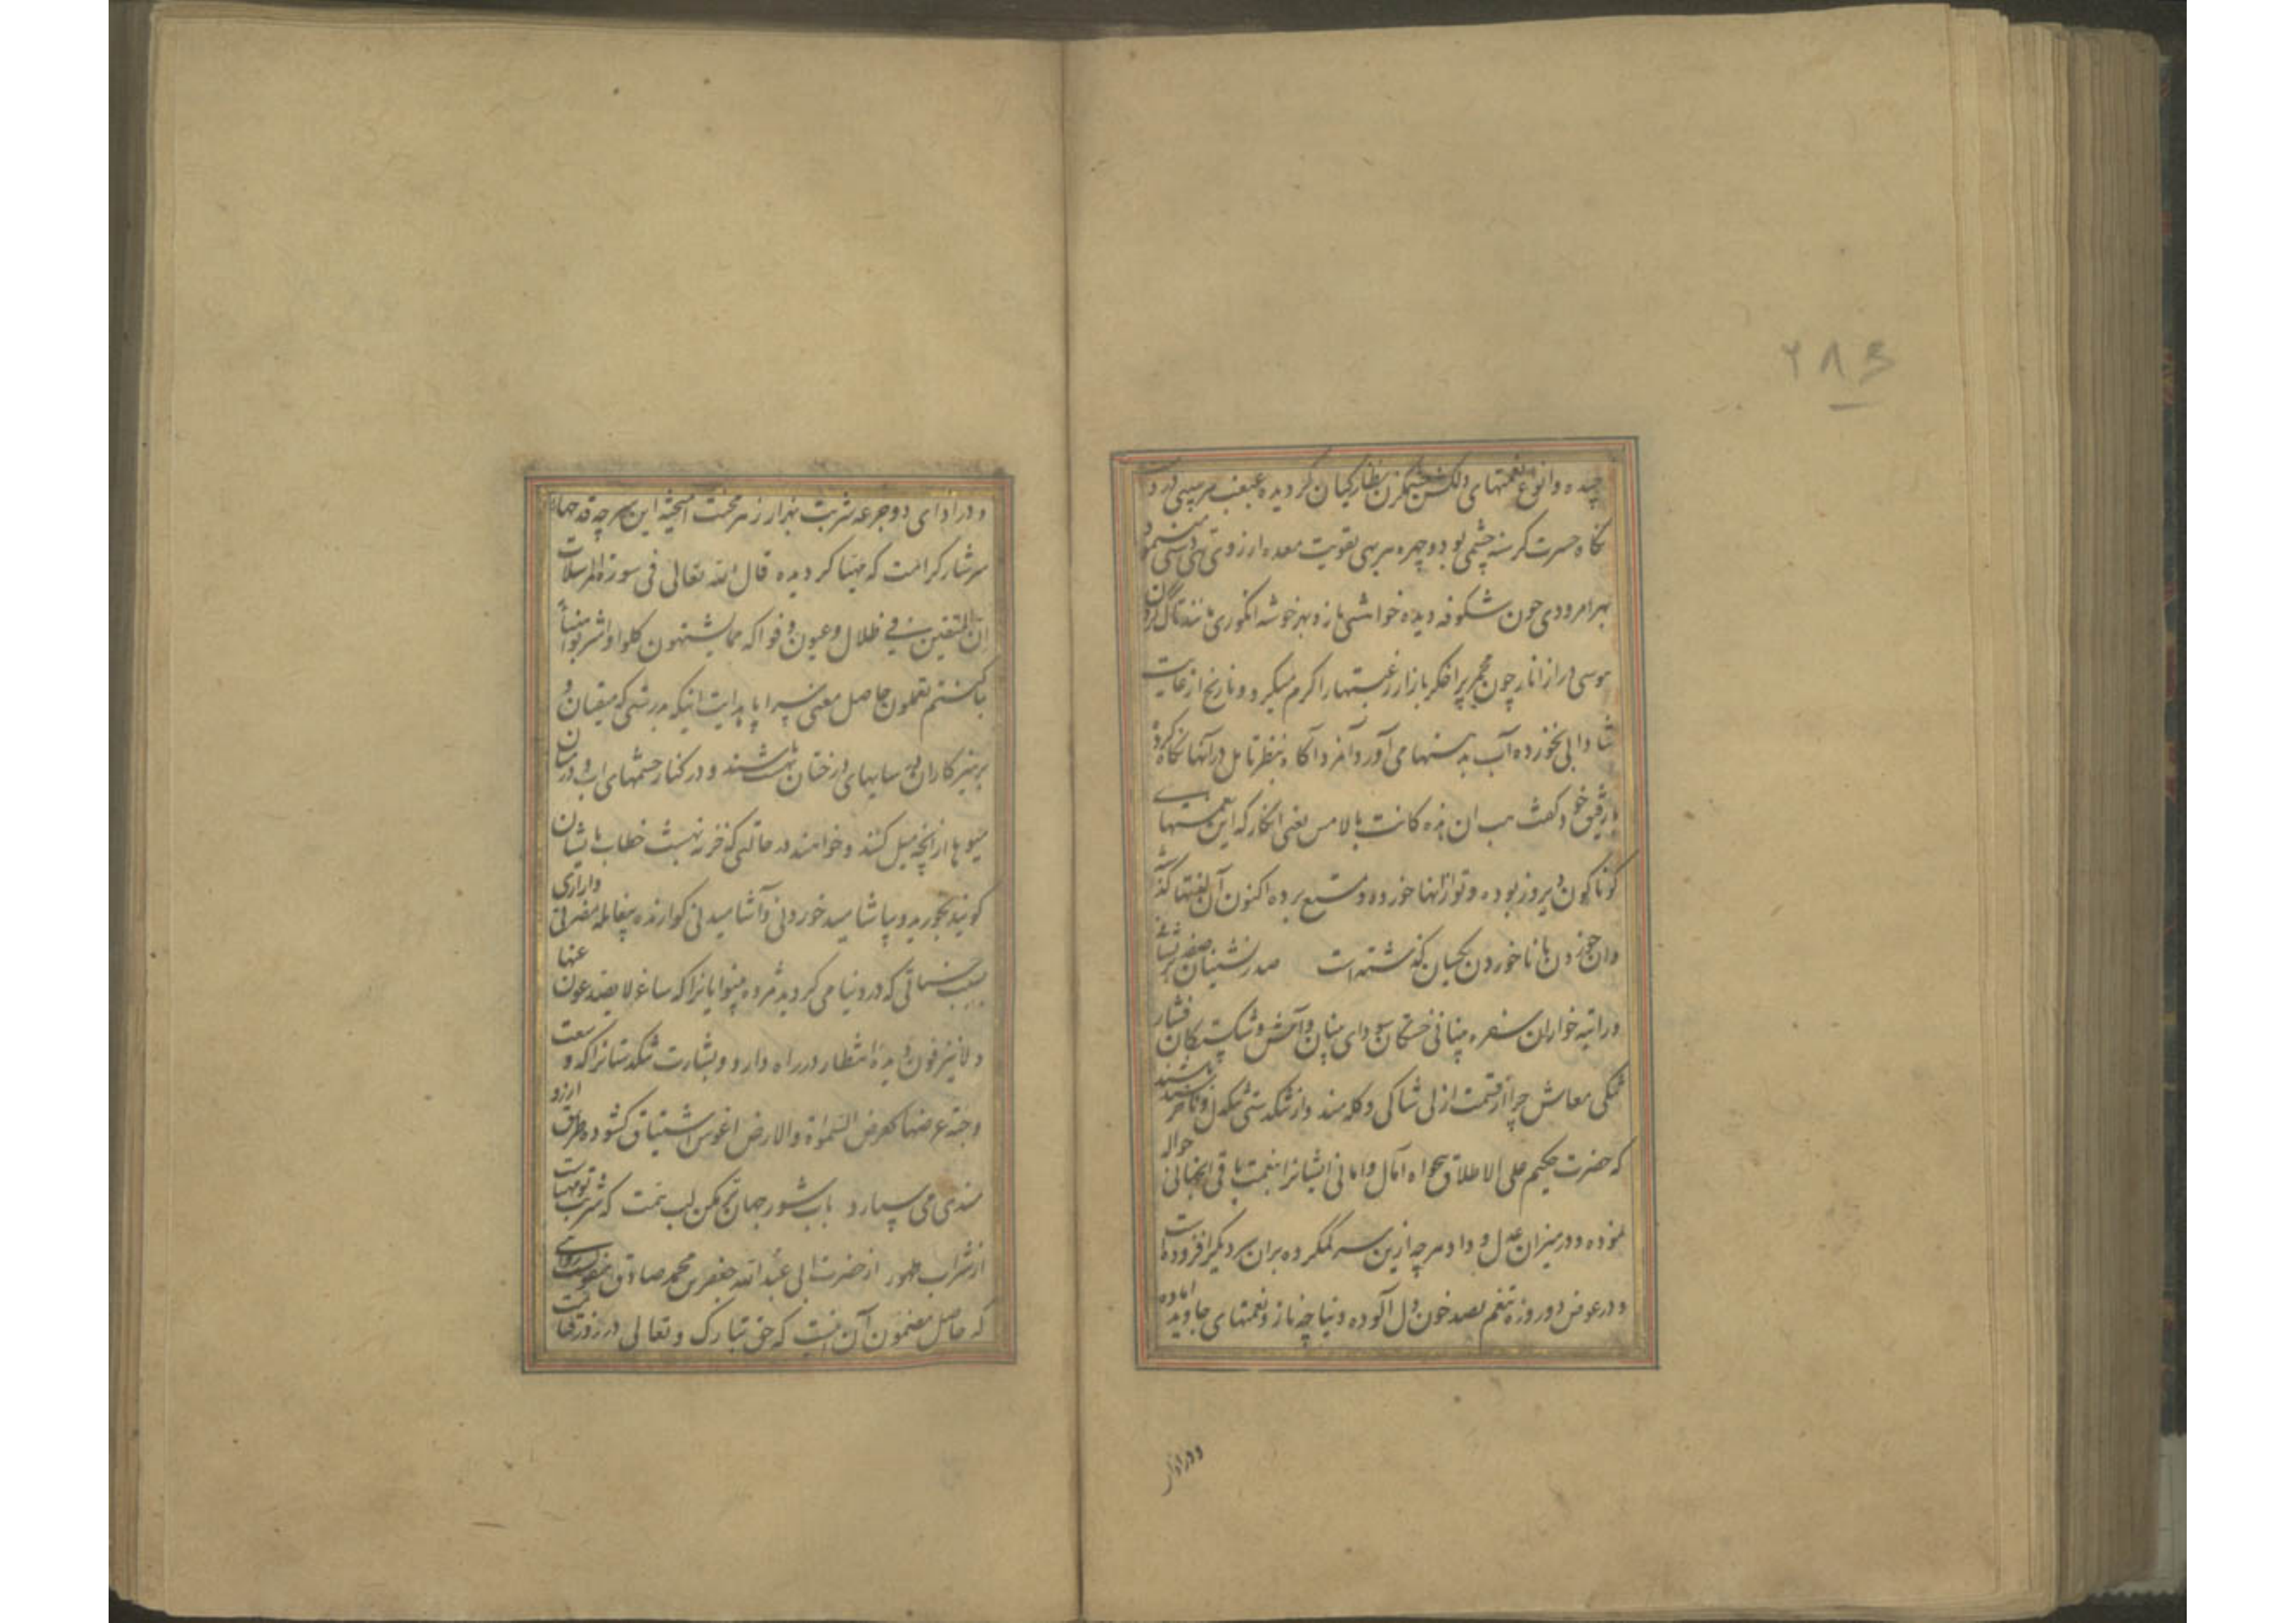 ۲۸۳
چیده وانواع نعمتهای دلکش چشمکزن نظارکیان کردیده عبعب مرمیی در
نکاه حسرت کرسنه چشمی بود وچهره بهی تقویت معده ارزوی تهی دستی مینمود
بهر امرودی چون شکوفه دیده خواهشی باز و بهر خوشه انکوری مانند تاک کردن
هوسی دراز انار چون مجمر پر اخکر بازار رغبتها را کرم میکرد و نارنج از غایت
شادابی نخورده آب بدهنها می آورد آنمرد آکاه بنظر تامل درآنها نکاه کرده
بارفیق خود کفت هب ان هذه کانت بالامس یعنی انکار که این نعمتهای
کوناکون دیروز بوده و توازانها خورده و تمتع برده اکنون آن لذتها کذشته
وان خوردن با ناخوردن یکسان کذشته است صدرنشینان صفه پریشانی
وراتبه خواران سفره بینانی خستکان سودای میان وآتش و شکستکان فشار
تنکی معاش چرا از قسمت ازلی شاکی وکله مند و از تنکدستی تنکدل وناخرسند باشند
که حضرت حکیم علی الاطلاق بخواه آمال وامانی ایشانرا بنعمت باقی آنجهانی حواله
نموده و در میزان عدل و داد هرچه ازین سر کم کرده بران سر دیکر افزوده است
و در عوض دو روزه تنعم بصد خون دل آلوده دنیا چه ناز و نعمتهای جاوید اماده
و در ادای
و در ادای دو جرعه شربت بهزار زهر محنت امیخته این سر چه قدحهای
سرشار کرامت که مهیا کردیده قال الله تعالی فی سورة المرسلات
ان المتقین فی ظلال وعیون و فواکه مما یشتهون کلوا واشربوا هنیئا
بما کنتم تعملون حاصل معنی سراپا هدایت اینکه بدرستی که متقیان و
پرهیزکاران در سایهای درختان بهشت باشند و در کنار چشمهای اب و درمیان
میوها از انچه میل کنند وخواهند در حالتی که خزنه بهشت خطاب بایشان
کویند بخورید وبیاشامید خوردنی وآشامیدنی کوارنده بیغایله مضرتی وازاری
بسبب حسناتی که در دنیا می کردید مژده بینوایانرا که ساغر لا یصدعون عنها
ولا ینزفون دیده انتظار در راه دارد و بشارت تنکدستانرا که وسعت
وجنة عرضها کعرض السموات والارض اغوش اشتیاق کشوده بطریق ارزو
مندی می سپارد باب شور جهان تر مکن لب همت که شربتیست تو مهیا
از شراب طهور از حضرت ابی عبد الله جعفر بن محمد صادق علیه السلام مرویست
که حاصل مضمون آن اینست که حق تبارک و تعالی در روز قیامت